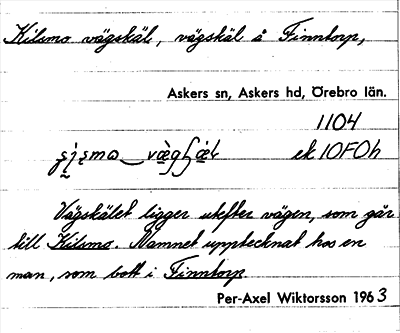 Kilsmo vägskäl, vägskäl å Finntorp,
Askers sn, Askers hd, Örebro län.
1104
ek 10F0h
Vägskälet ligger utefter vägen, som går
till Kilsmo. Namnet upptecknat hos en
man, som bott i Finntorp.
Per-Axel Wiktorsson 1963